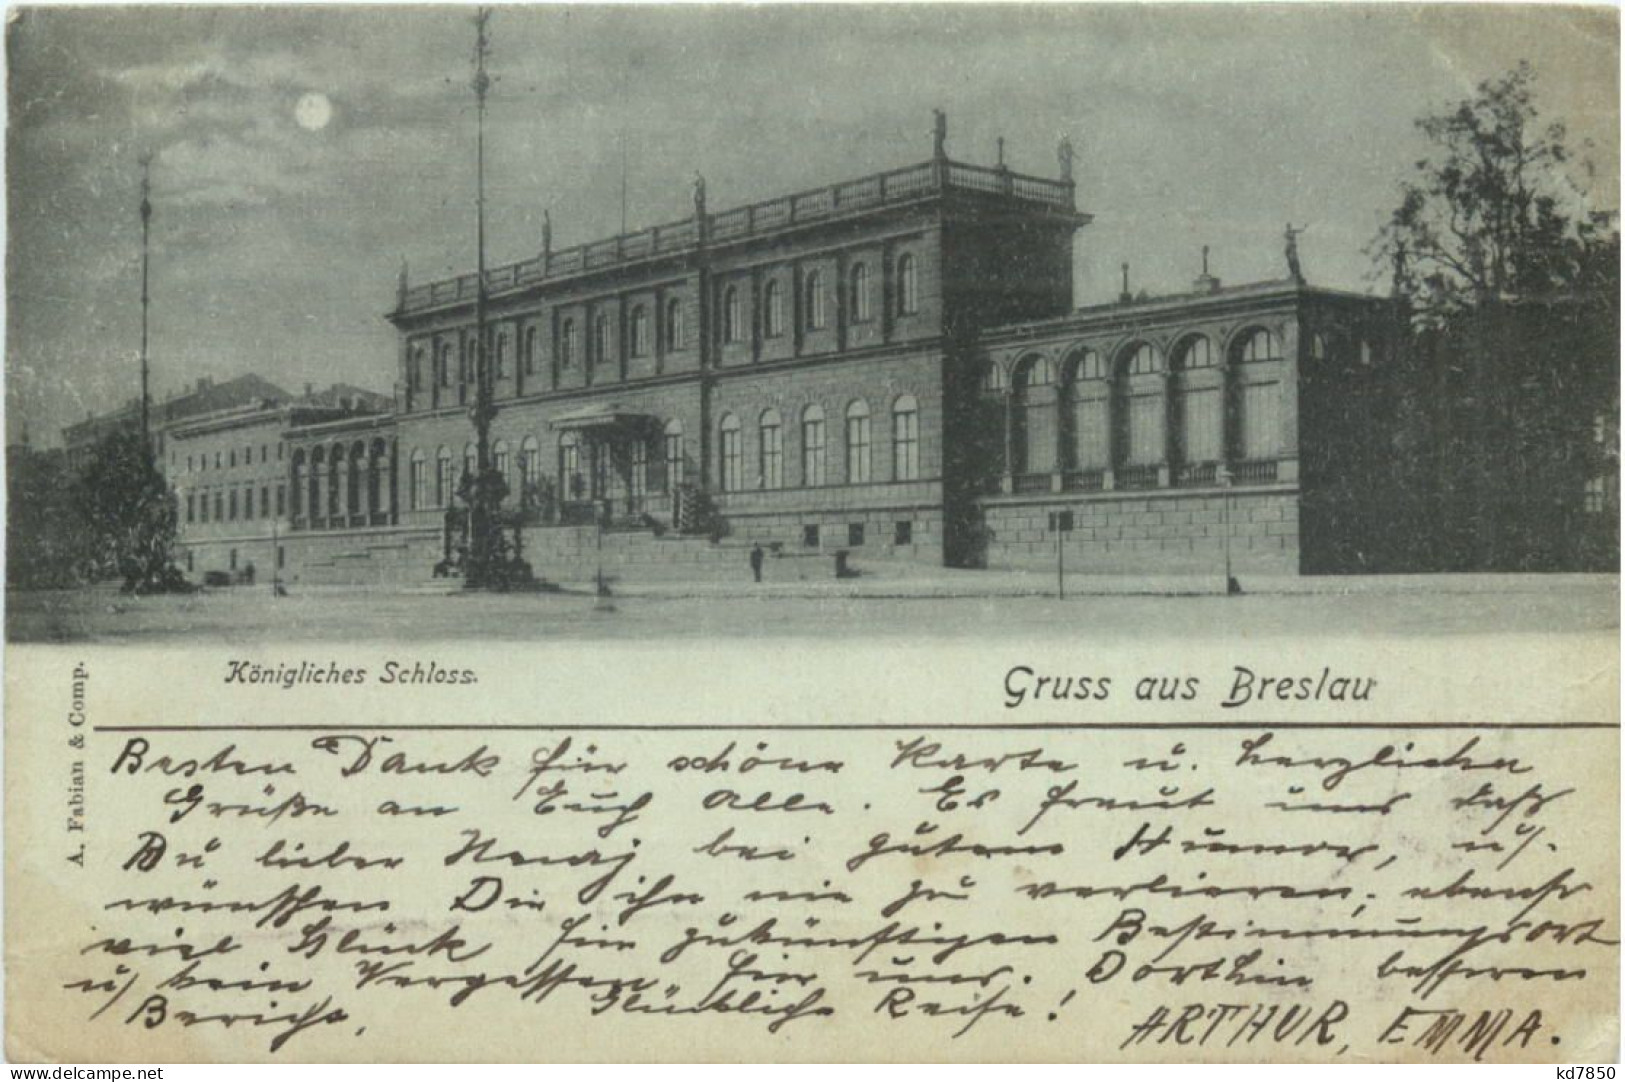 Königliches Schloss.
Gruss aus Breslau
A. Fabian & Comp.
Besten Dank für schöne Karte u. herzlichen
Grüße an Euch Alle. Es freut uns daß
Du lieber bei gutem Humor, u/.
wünschen Dir ihn nie zu verlieren; ebenso
viel Glück für zukünftigen Bestimmungsort
u/ kein Vergessen für uns. Dorthin besseren
Bericht. Glückliche Reise!
ARTHUR, EMMA.
www.delcampe.net
kd7850